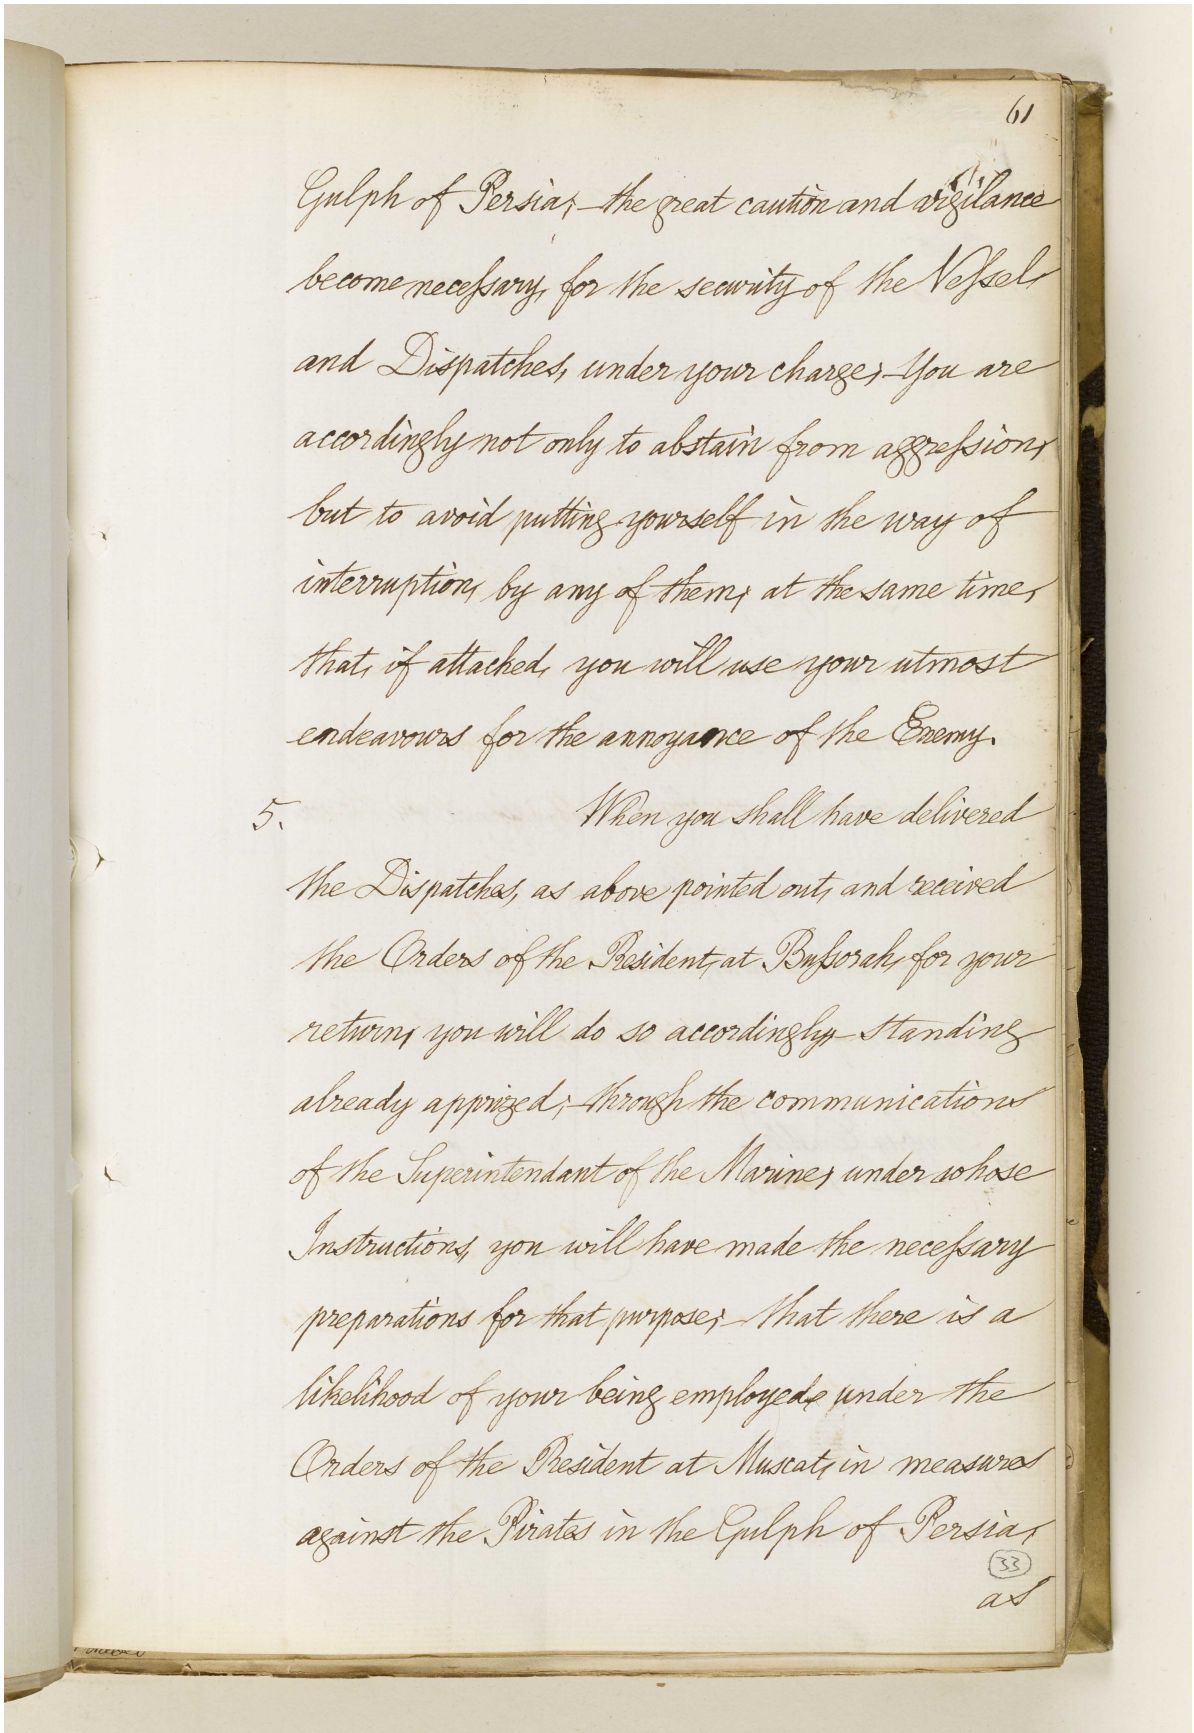 61
Gulph of Persia; – the great caution and vigilance
become necessary, for the security of the Vessel,
and Dispatches, under your charge; – You are
accordingly not only to abstain from aggression,
but to avoid putting yourself in the way of
interruption, by any of them; at the same time,
that, if attacked, you will use your utmost
endeavours for the annoyance of the Enemy.
5. When you shall have delivered
the Dispatches, as above pointed out, and received
the Orders of the Resident, at Bussorah, for your
return, you will do so accordingly, – standing
already apprized; – through the communications
of the Superintendant of the Marine, under whose
Instructions, you will have made the necessary
preparations for that purpose; – that there is a
likelihood of your being employed, under the
Orders of the Resident at Muscat, in measures
against the Pirates in the Gulph of Persia,
33
as